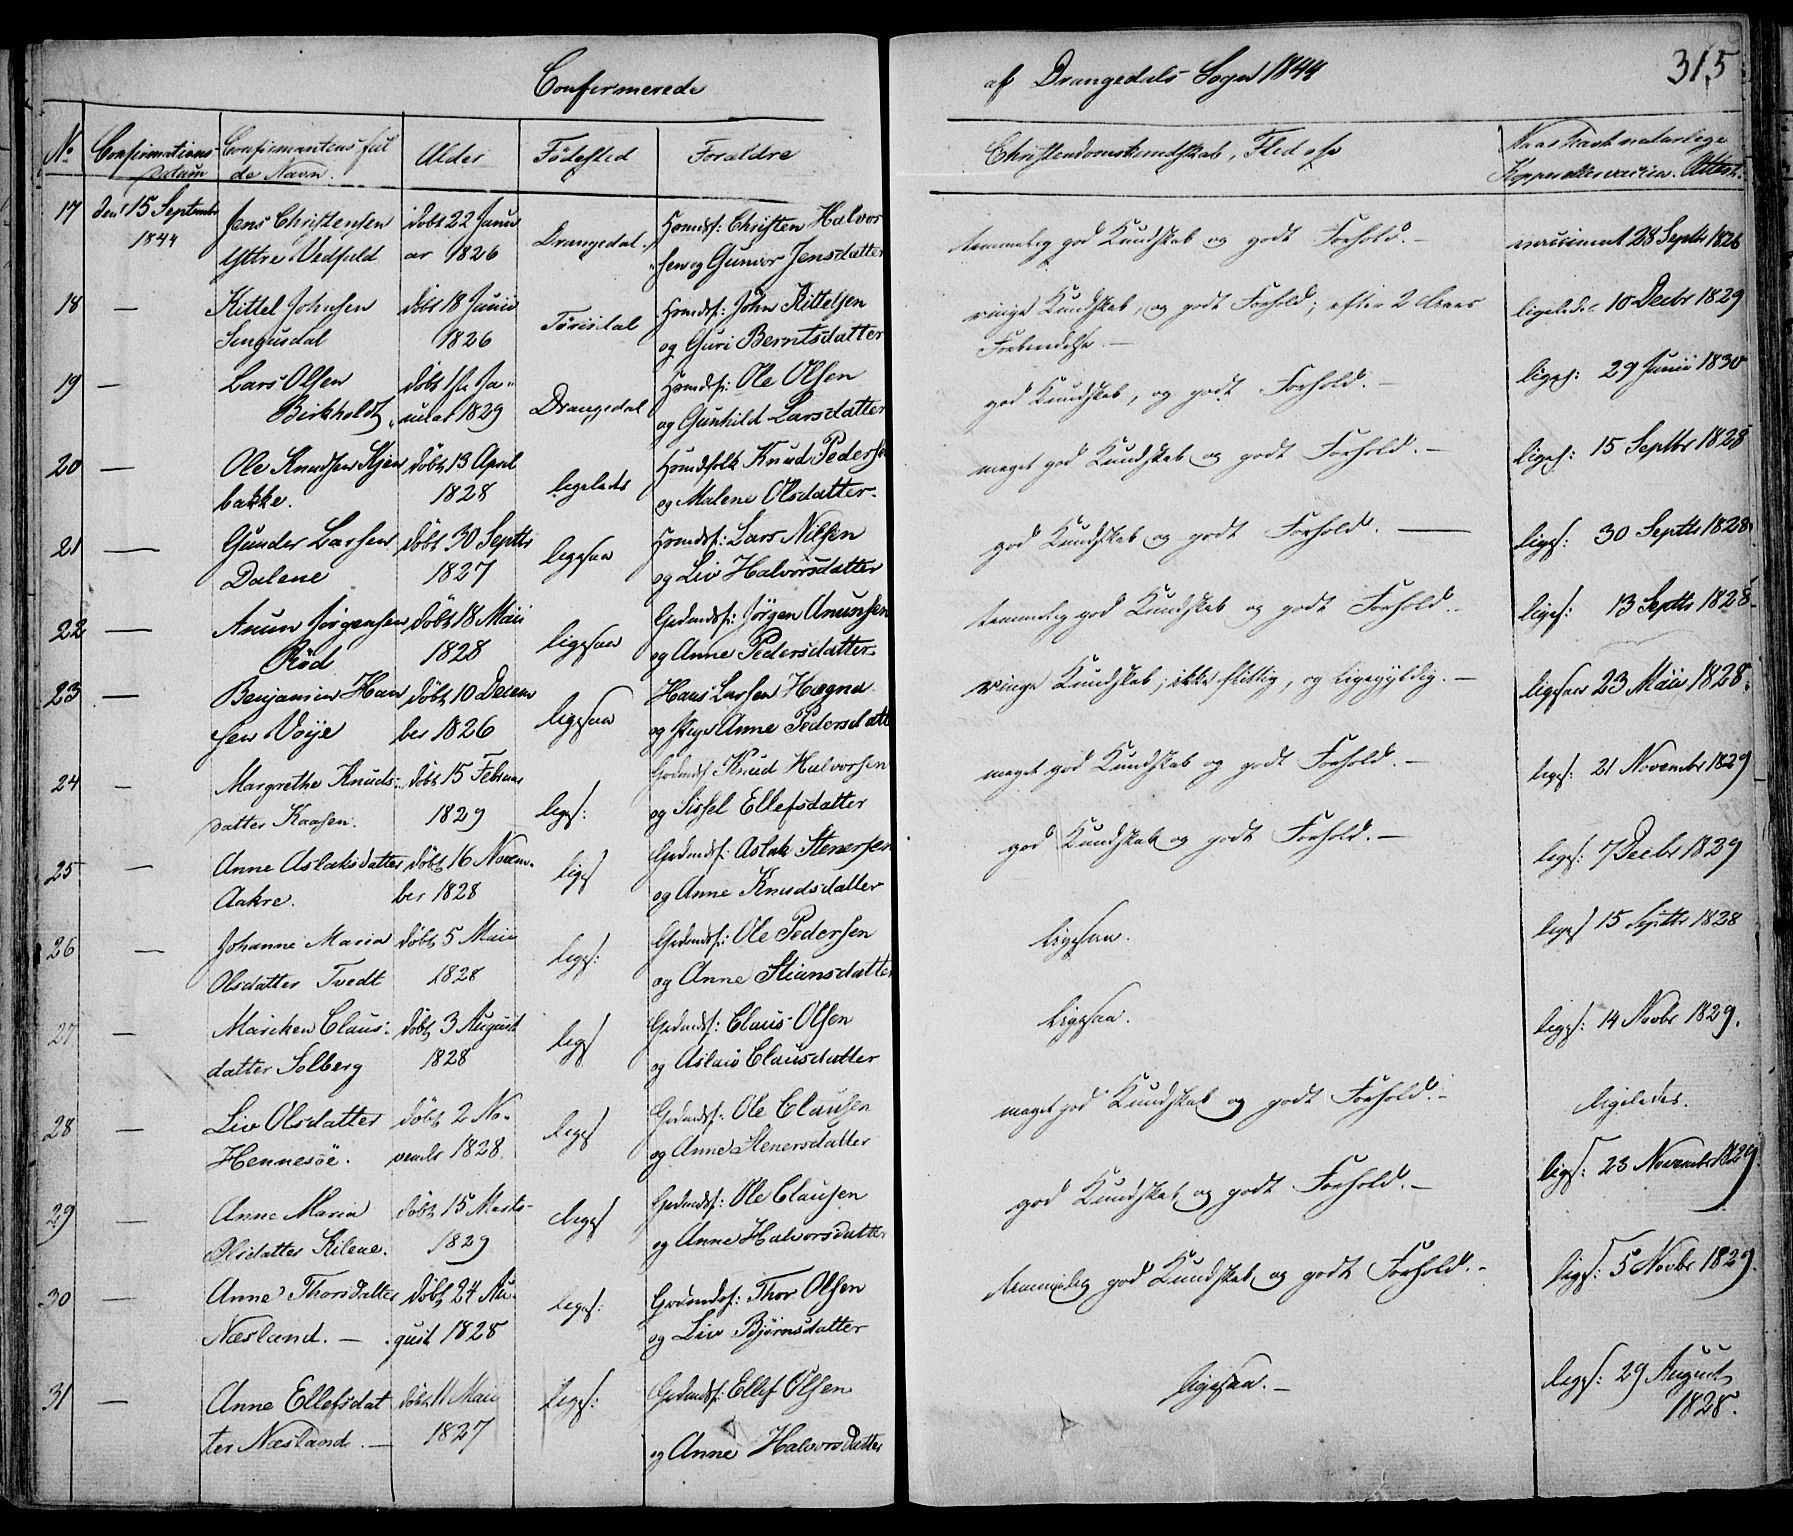 Confirmerede
af Drangedals Sogn 1844
315
No
Confirmations-
Datum
Confirmantens ful
de Navn.
Alder
Födested
Forældre
Christendomskundskab, Flid osv
Naar havt naturlige
Kopper eller vaccin. Attest.
17 den 15 Septembr
1844
Jens Christensen
Yttre Vedfald
döbt 22 Janu
ar 1826
Drangedal
Hmdsf: Christen Halvor
sen og Gunvor Jensdatter
temmelig god Kundskab og godt Forhold. -
vaccineret 28 Septbr 1826
18 -
Kittel Johnsen
döbt 18 Junii
1826
Törisdal
Hmdsf: John Kittelsen
og Guri Berntsdatter
ringe Kundskab, og godt Forhold; efter 2 Aars
Forberedelse. -
ligeledes 10 Decbr 1829
19 -
Lars Olsen
Birkholdt
döbt Ja-
nuar 1829
Drangedal
Hmdsf: Ole Olsen
og Gunhild Larsdatter
god Kundskab, og godt Forhold. -
liges: 29 Junii 1830
20 -
Ole Knudsen Stjen
bakke.
döbt 13 April
1828
ligeleds
Huusfolk Knud Peders
og Malene Olsdatter.
meget god Kundskab og godt Forhold. -
liges: 15 Septbr 1828
21 -
Gunder Larsen
Dalene
döbt 30 Septbr
1827
ligesaa
Hmdsf: Lars Nilsen
og Liv Halvorsdatter
god Kundskab og godt Forhold. -
liges: 30 Septbr 1828
22 -
Anun Jörgensen
Röd
döbt 18 Maii
1828
ligesaa
Grdmdsf: Jörgen Anunsen
og Anne Pedersdatter.
temmelig god Kundskab og godt Forhold. -
liges: 13 Septbr 1828
23 -
Benjamin Han
sen Vöije
döbt 10 Decem
ber 1826
ligesaa
Hans Larsen Hægna
og Pige Anne Pedersdatt
ringe Kundskab; ikke flittig, og ligegyldig. -
ligesaa 23 Maii 1828.
24 -
Margrethe Knuds-
datter Kaasen.
döbt 15 Februar
1829
liges:
Grdmdsf Knud Halvorsen
og Sissel Ellefsdatter
meget god Kundskab og godt Forhold. -
liges: 21 Novembr 1829
25 -
Anne Aslaksdatter
Aakre.
döbt 16 Novem-
ber 1828
liges
Grdmdsf: Aslak Stenersen
og Anne Knudsdatter
god Kundskab og godt Forhold. -
liges: 7 Decbr 1829
26 -
Johanne Maria
Olsdatter Tvedt
döbt 5 Maii
1828
liges:
Grdmdsf: Ole Pedersen
og Anne Stiansdatter
ligesaa.
liges 15 Septbr 1828
27 -
Maichen Claus-
datter Solberg
döbt 3 August
1828
liges
Grdmdsf: Claus Olsen
og Aslaug Clausdatter
ligesaa.
liges: 14 Novbr 1829.
28 -
Liv Olsdatter
Hennesöe.
döbt 2 No-
vembr 1828.
liges
Grdmdsf: Ole Clausen
og Anne Stenersdatter
meget god Kundskab og godt Forhold. -
ligeledes.
29 -
Anne Maria
Olsdatter Kilene.
döbt 15 Marts-
1829
liges
Grdmdsf: Ole Clausen
og Anne Halvorsdatter
god Kundskab, og godt Forhold. -
liges: 23 Novembr 1829.
30 -
Anne Thorsdatter
Næsland. -
döbt 24 Au-
gust 1828
liges:
Grdmdsf: Thor Olsen
og Liv Björnsdatter
temmelig god Kundskab og godt Forhold. -
liges: 5 Novbr 1829.
31 -
Anne Ellefsdat
ter Næsland. -
döbt 11 Maii
1827
liges:
Grdmdsf: Ellef Olsen
og Anne Halvorsdatter
ligesaa. -
liges: 29 August
1828.